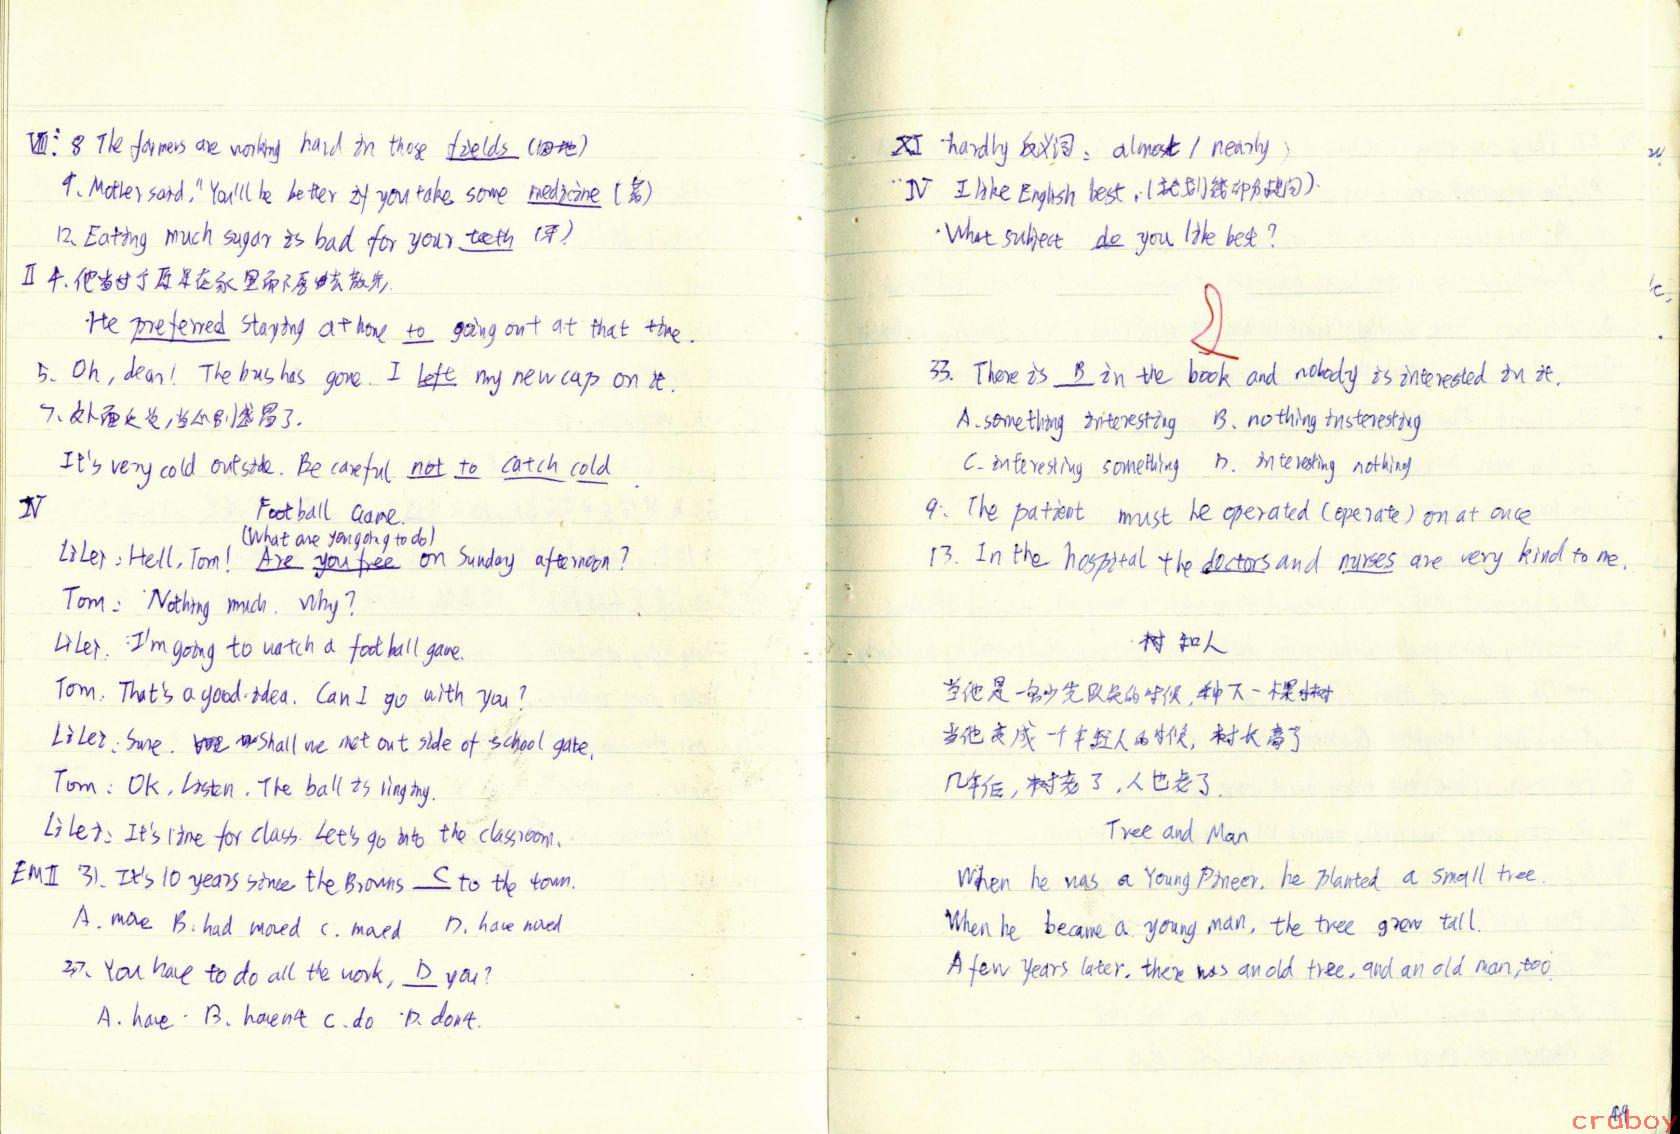 VIII: 8 The farmers are working hard in those fields (田地)
9. Mother said, "You'll be better if you take some medicine (药)
12. Eating much sugar is bad for your teeth (牙)
II 4. 他当时宁愿呆在家里而不愿出去散步.
He preferred staying at home to going out at that time.
5. Oh, dear! The bus has gone. I left my new cap on it.
7. 外面很冷,当心别感冒了.
It's very cold outside. Be careful not to catch cold
IV Football Game.
(What are you going to do)
LiLei: Hell, Tom! Are you free on Sunday afternoon?
Tom: Nothing much. Why?
LiLei: I'm going to watch a football game.
Tom: That's a good idea. Can I go with you?
LiLei: Sure. Shall we met out side of school gate.
Tom: OK, Listen. The ball is ringing.
LiLei: It's time for class. Let's go into the classroom.
EMII 31. It's 10 years since the Browns C to the town.
A. move B. had moved C. moved D. have moved
37. You have to do all the work, D you?
A. have B. haven't C. do D. don't.
XI hardly 反义词: almost / nearly
IV I like English best. (就划线部分提问).
What subject do you like best?
33. There is B in the book and nobody is interested in it.
A. something interesting B. nothing insteresting
C. interesting something D. interesting nothing
9. The patient must be operated (operate) on at once
13. In the hospital the doctors and nurses are very kind to me.
树和人
当他是一名少先队员的时候,种下一棵小树
当他变成一个年轻人的时候,树长高了
几年后,树老了,人也老了.
Tree and Man
When he was a Young Pineer, he planted a small tree.
When he became a young man, the tree grew tall.
A few years later, there was an old tree, and an old man, too.
craboy